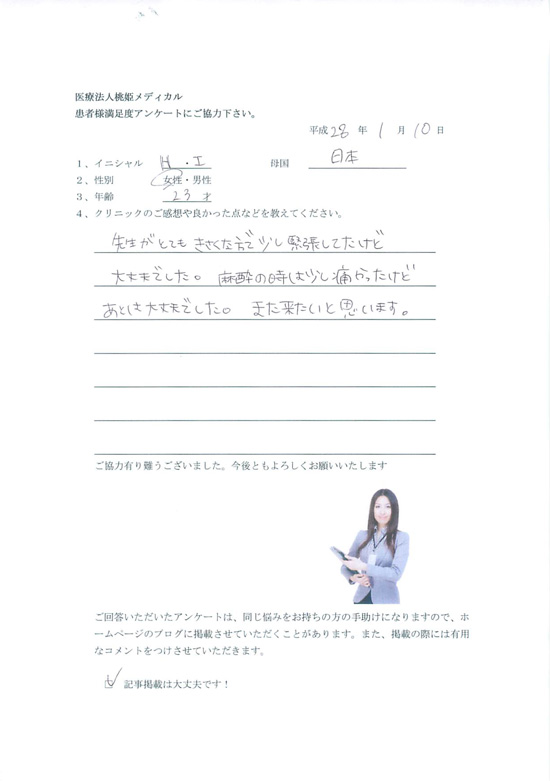 医療法人桃姫メディカル
患者様満足度アンケートにご協力下さい。
平成28年1月10日
1、イニシャル H・I 母国 日本
2、性別 女性・男性
3、年齢 23才
4、クリニックのご感想や良かった点などを教えてください。
先生がとてもきさくな方で少し緊張してたけど
大丈夫でした。麻酔の時は少し痛かったけど
あとは大丈夫でした。また来たいと思います。
ご協力有り難うございました。今後ともよろしくお願いいたします
ご回答いただいたアンケートは、同じ悩みをお持ちの方の手助けになりますので、ホ
ームページのブログに掲載させていただくことがあります。また、掲載の際には有用
なコメントをつけさせていただきます。
記事掲載は大丈夫です！